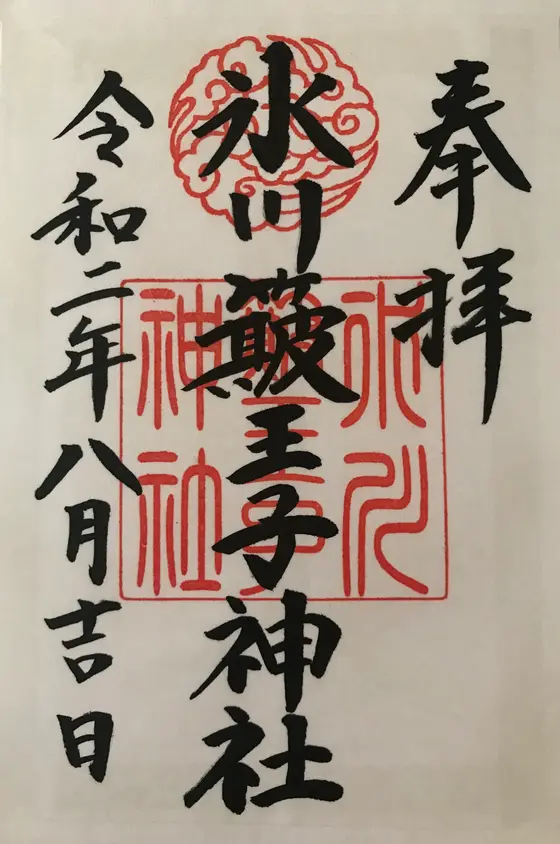 奉拝
氷川簸王子神社
令和二年八月吉日
氷川
簸王子
神社